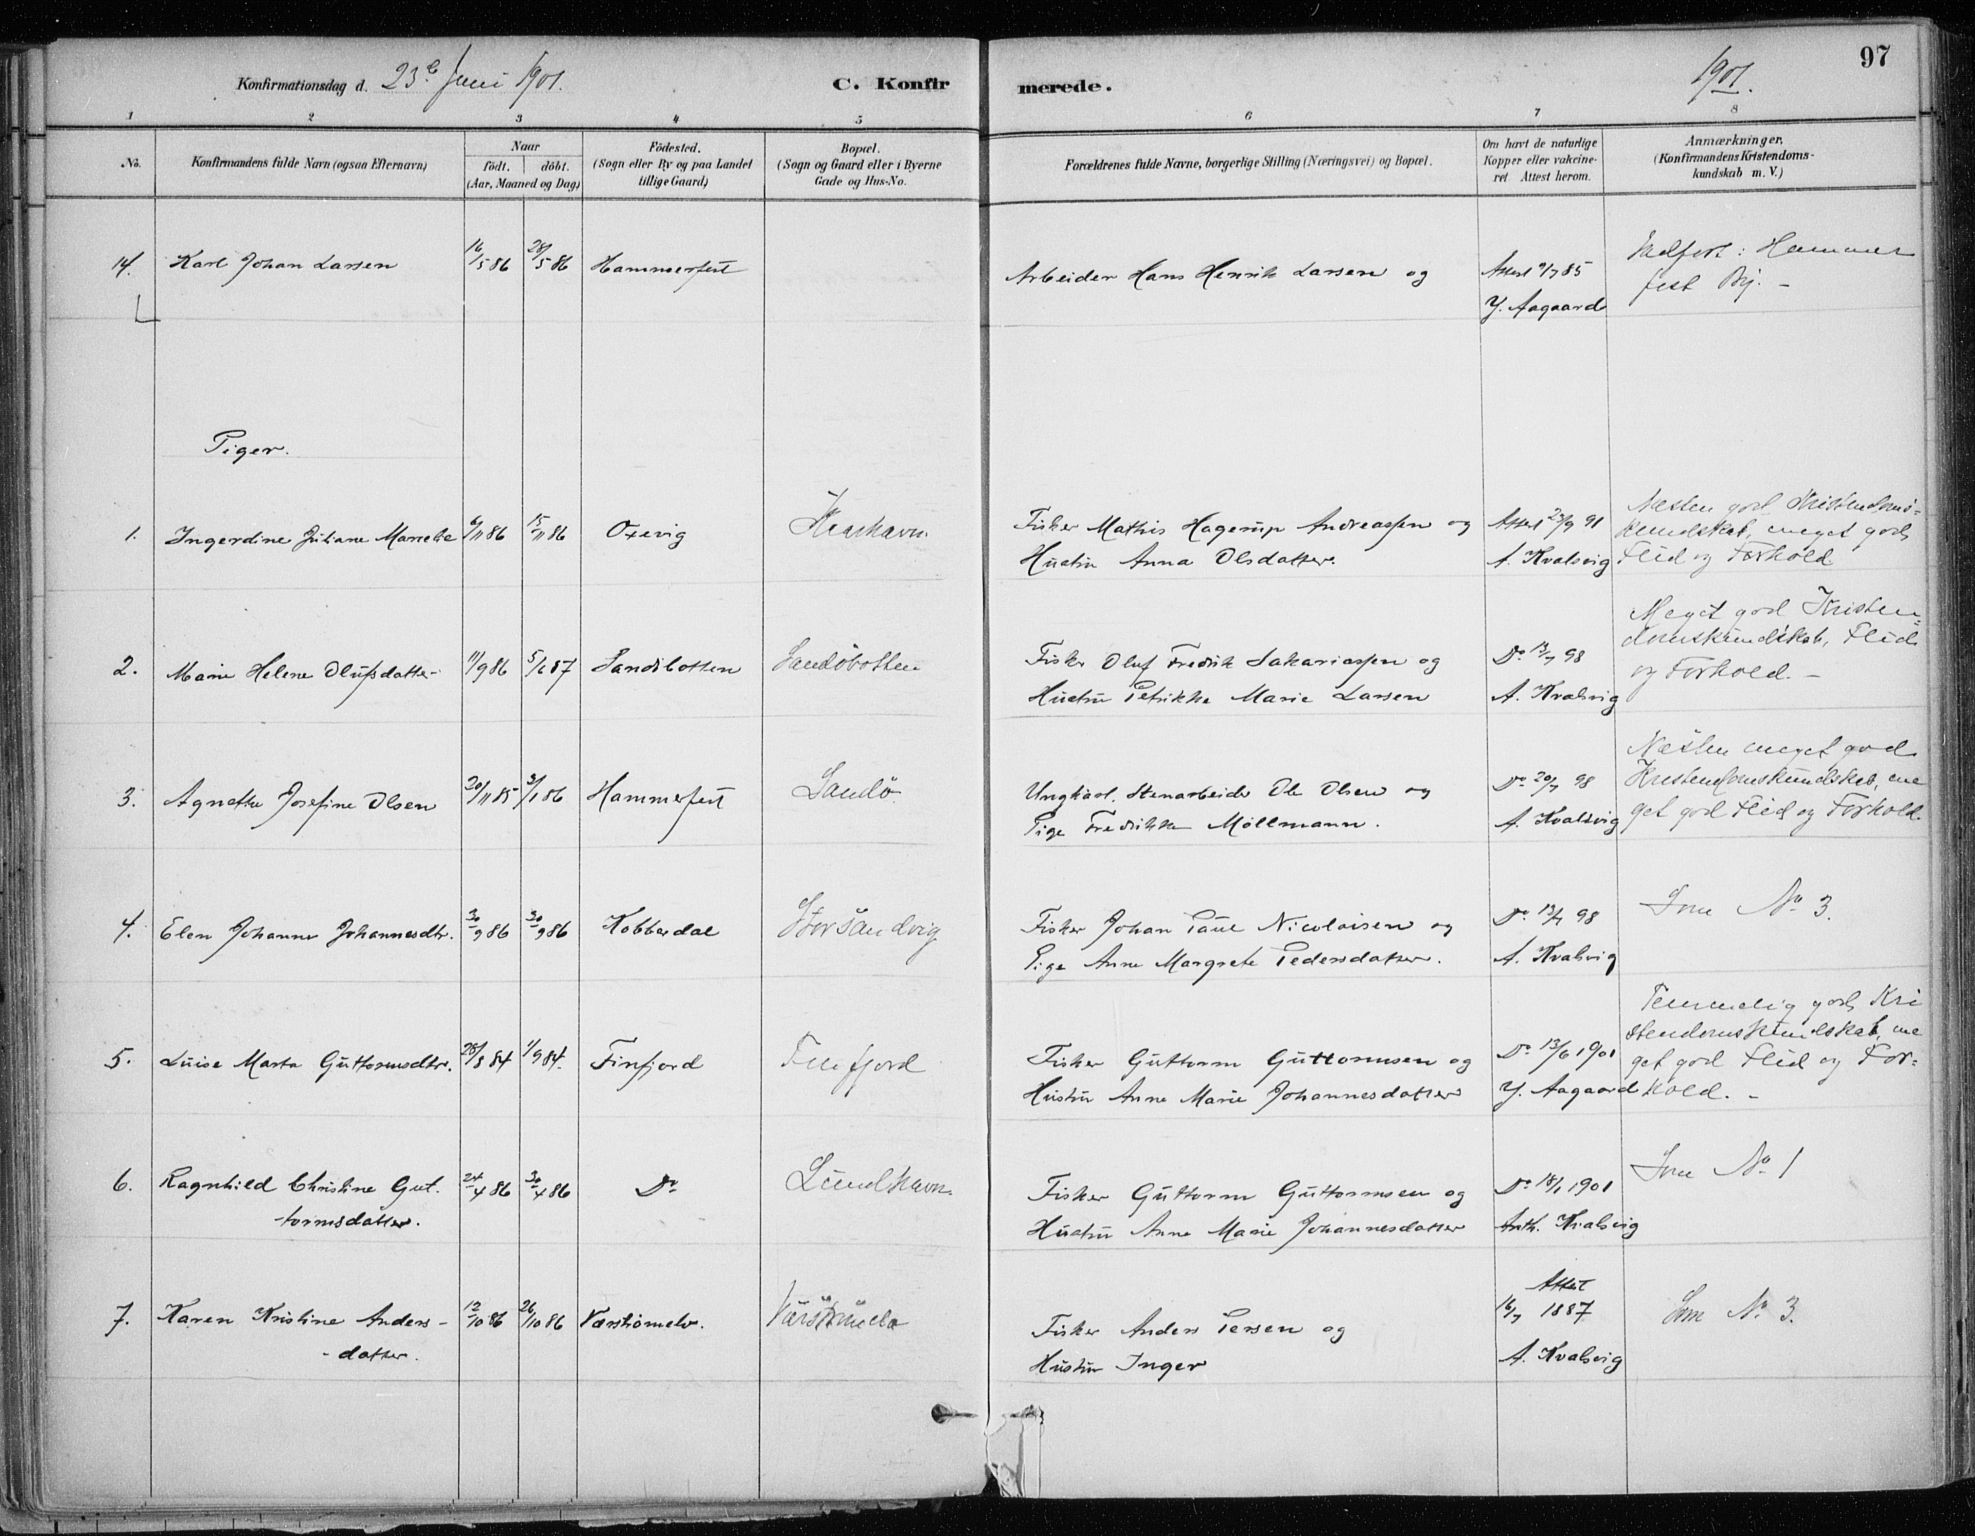 97
Konfirmationsdag d. 23de Juni 1901. C. Konfirmerede. 1901.
1 2 3 4 5 6 7 8
No. Konfirmandens fulde Navn (ogsaa Efternavn) Naar födt. döbt. (Aar, Maaned og Dag) Födested. (Sogn eller By og paa Landet tillige Gaard) Bopæl. (Sogn og Gaard eller i Byerne Gade og Hus-No. Forældrenes fulde Navne, borgerlige Stilling (Næringsvei) og Bopæl. Om havt de naturlige Kopper eller vakcineret Attest herom. Anmærkninger, (Konfirmandens Kristendomskundskab m. V.)
14. Karl Johan Larsen 16/5 86 28/5 86 Hammerfest Arbeider Hans Henrik Larsen og Attest 9/7 85
Y. Aagaard
Hammer
fest By. -
Piger.
1. Ingerdine Juliane Marselie 6/11 86 15/11 86 Oxevig Fisker Mathis Hagerup Andreassen og
Hustru Anna Olsdatter.
Attest 25/9 91
A. Kvalsvig
Næsten god Kristendoms-
kundskab, meget god
Flid og Forhold
2. Marie Helene Olufsdatter 11/9 86 5/6 87 Sandöbotten Sandöbotten Fisker Oluf Fredrik Sakariassen og
Hustru Petrikke Marie Larsen
Do 13/7 98
A. Kvalsvig
Meget god Kristen-
domskundskab, Flid
og Forhold. -
3. Agnethe Josefine Olsen 20/11 85 3/1 86 Hammerfest Sandö Ungkarl, Stenarbeider Ole Olsen og
Pige Fredrikke Möllmann.
Do 20/7 98
A. Kvalsvig
Næsten meget god
Kristendomskundskab, me
get god Flid og Forhold.
4. Elen Johanne Johannesdtr. 30/9 86 30/9 86 Kobberdal Storsandvig Fisker Johan Paul Nicolaisen og
Pige Anne Margrete Pedersdatter.
Do 13/7 98
A. Kvalsvig
Som No 3.
5. Luise Marta Guttormsdtr. 28/8 84 1/9 84. Finfjord Finfjord Fisker Guttorm Guttormsen og
Hustru Anne Marie Johannesdatter
Do 13/6 1901
Y. Aagaard
Temmelig god Kri
stendomskundskab, me
get god Flid og For-
hold. -
6. Ragnhild Christine Gut-
tormsdatter.
24/4 86 30/4 86 Do Lundhavn Fisker Guttorm Guttormsen og
Hustru Anne Marie Johannesdatter
Do 18/1 1901
Anth. Kvalsvig
Som No 1
7. Karen Kristine Anders-
-datter.
12/10 86 26/10 86 Fisker Anders Persen og
Hustru Inger
Attest
16/7 1887
A. Kvalsvig
Som No 3.